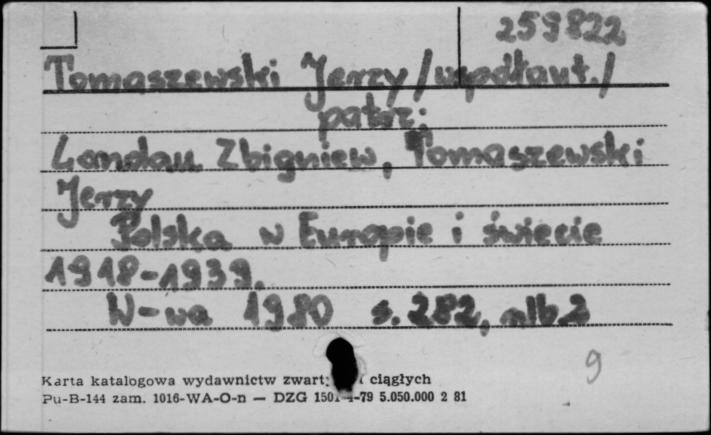 259822
Tomaszewski Jerzy /współaut./
patrz:
Landau Zbigniew, Tomaszewski
Jerzy
Polska w Europie i świecie
1918-1939.
W-wa 1980 s. 282, nlb. 2
9
Karta katalogowa wydawnictw ciągłych
Pu-B-144 zam. 1016-WA-O-n — DZG 5.050.000 2 81